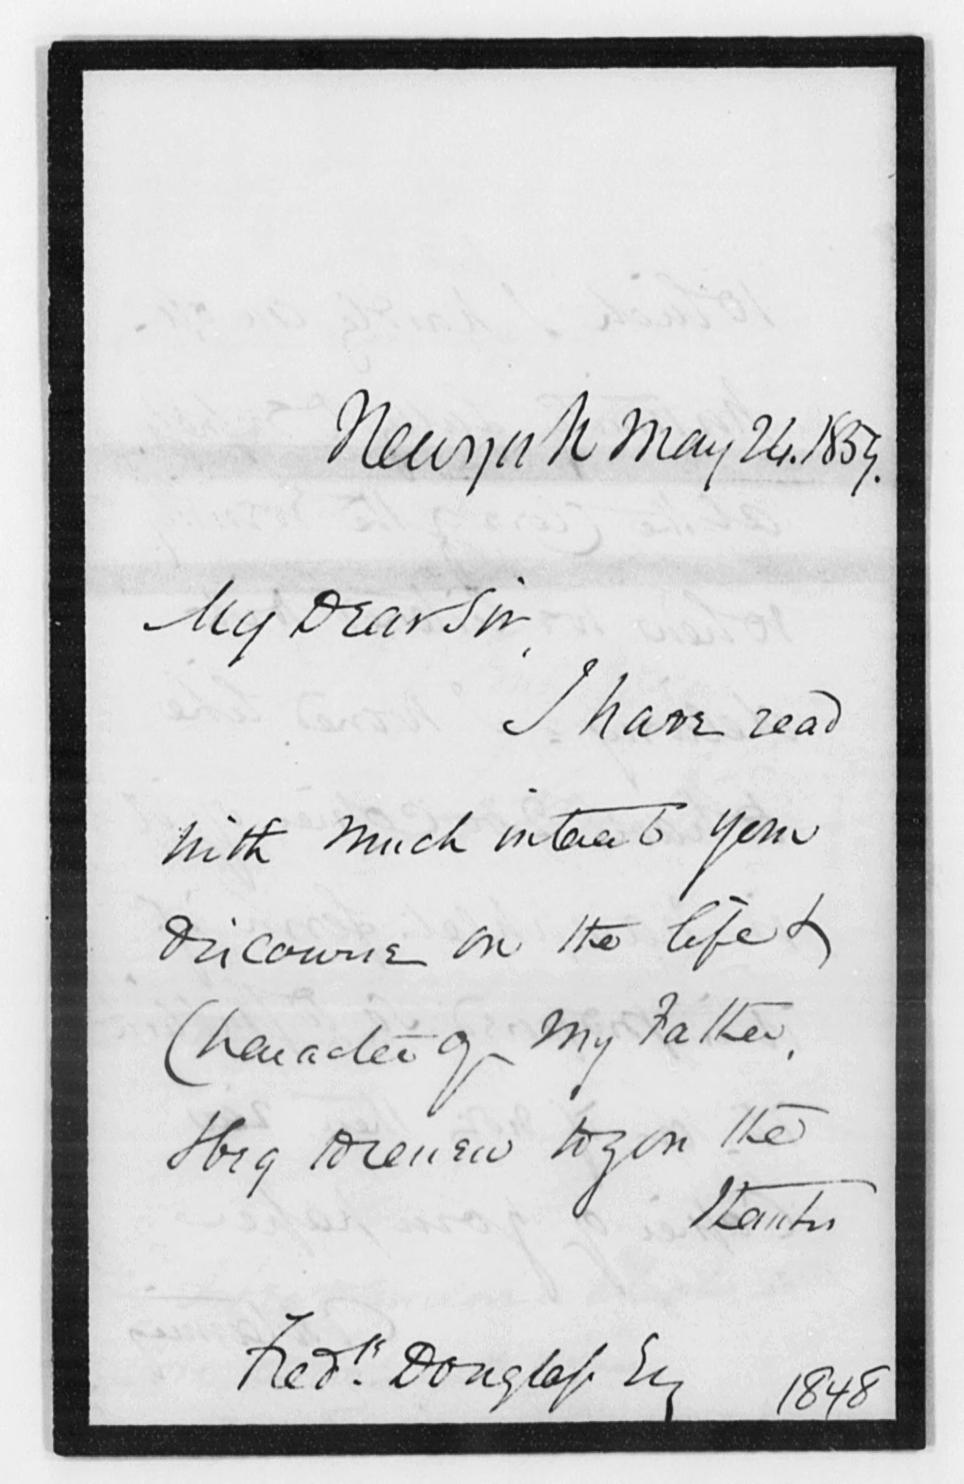 New York May 24. 1859.
My Dear Sir,
I have read
with much interest your
Discourse on the life &
Character of My Father.
I beg to renew to you the
thanks
Fredk. Douglass Esq
1848